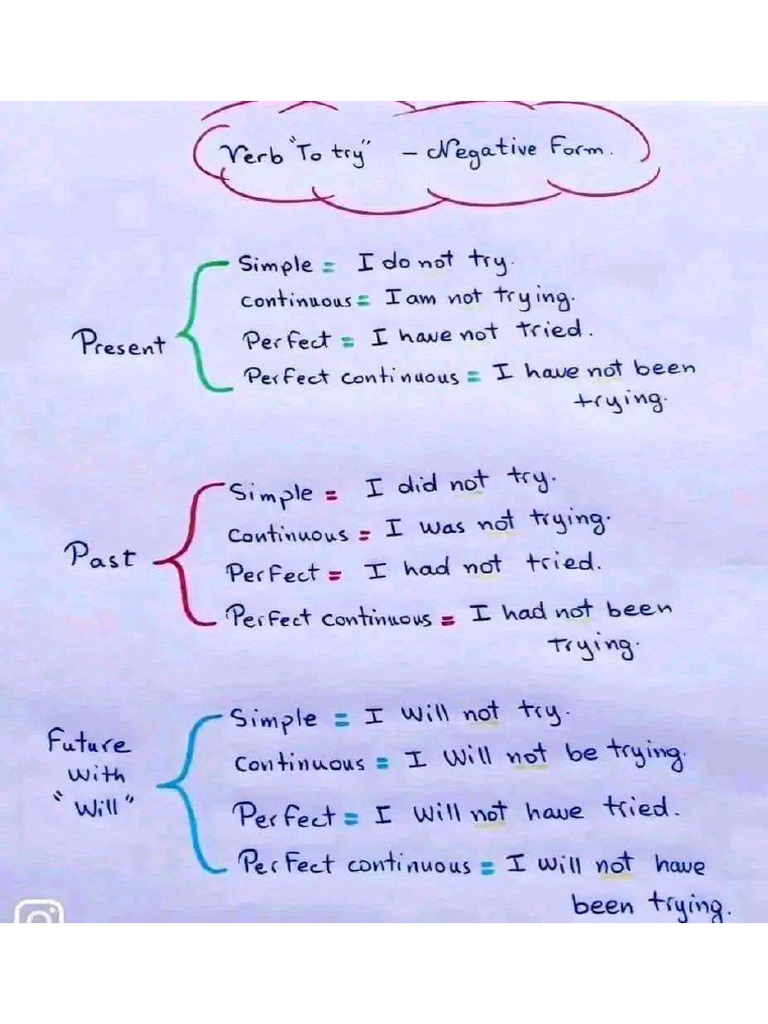 Verb "To try" - Negative Form.
Simple = I do not try.
Continuous = I am not trying.
Present
Perfect = I have not tried.
Perfect continuous = I have not been
trying.
Simple = I did not try.
Continuous = I was not trying.
Past
Perfect = I had not tried.
Perfect continuous = I had not been
trying.
Simple = I will not try.
Future
with
"Will"
Continuous = I will not be trying.
Perfect = I will not have tried.
Perfect continuous = I will not have
been trying.